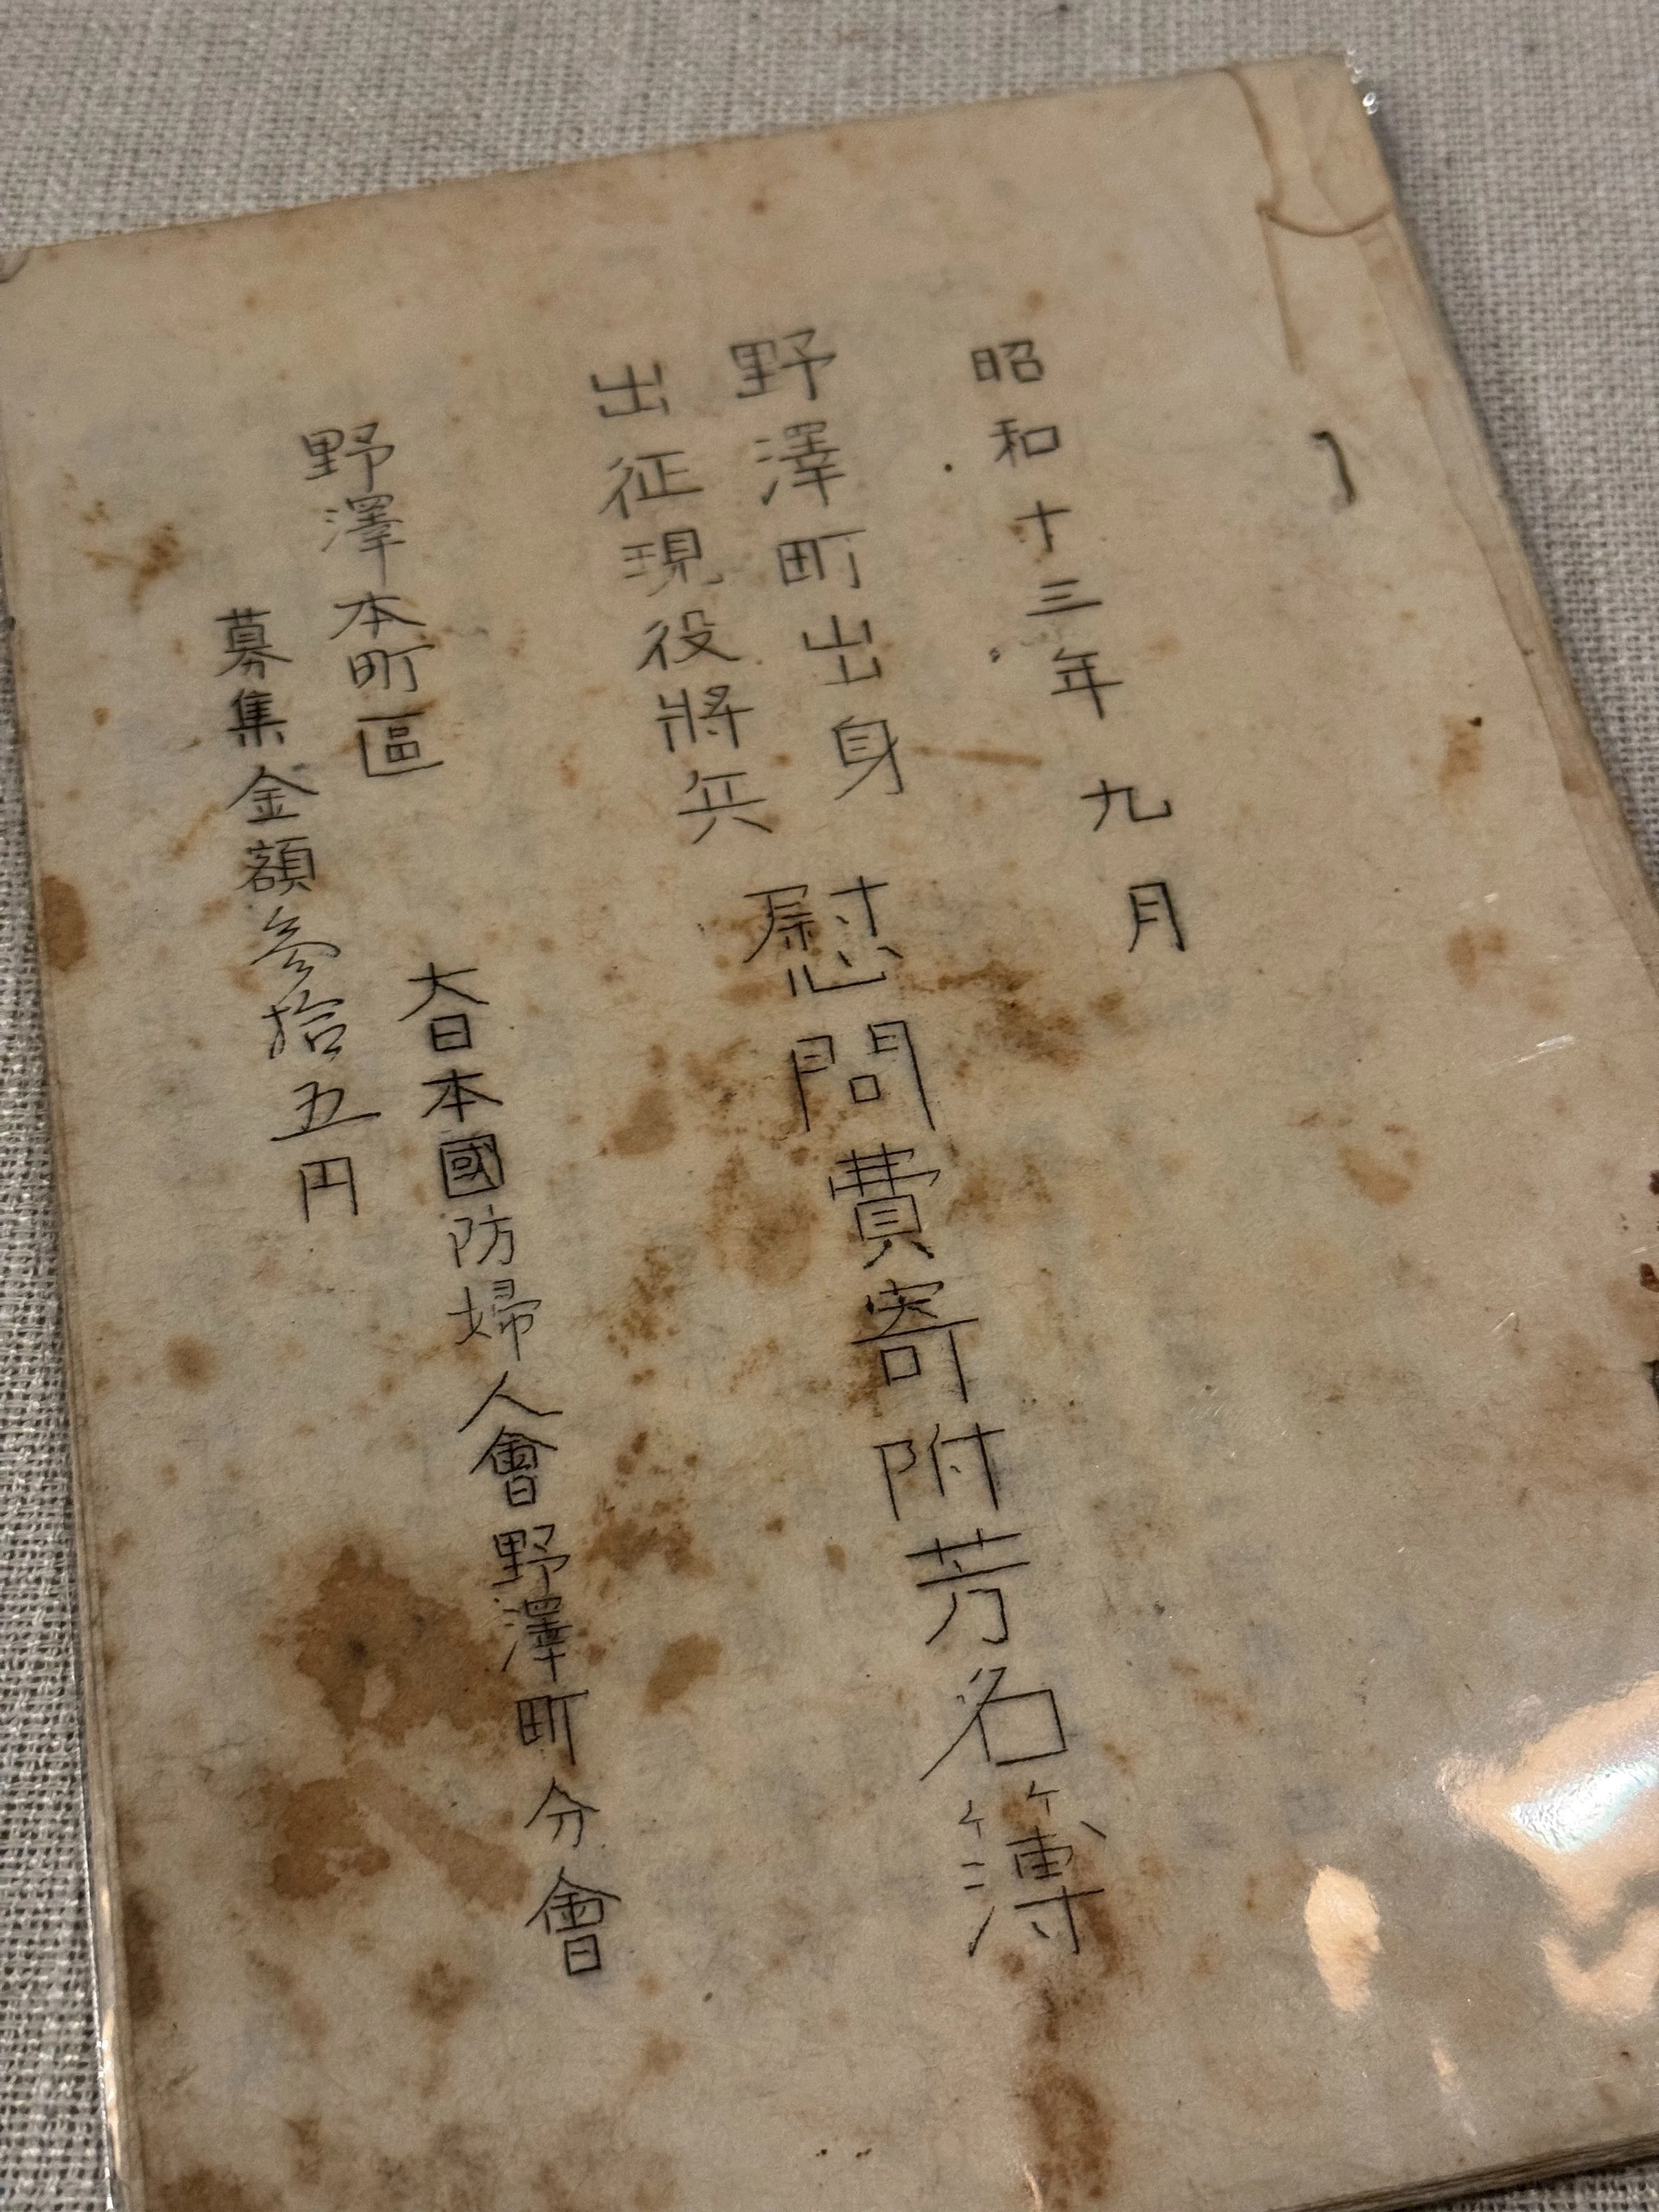 昭和十三年九月
野澤町出身
出征現役將兵
慰問費寄附芳名簿
大日本國防婦人會野澤町分會
野澤本町區
募集金額参拾五円